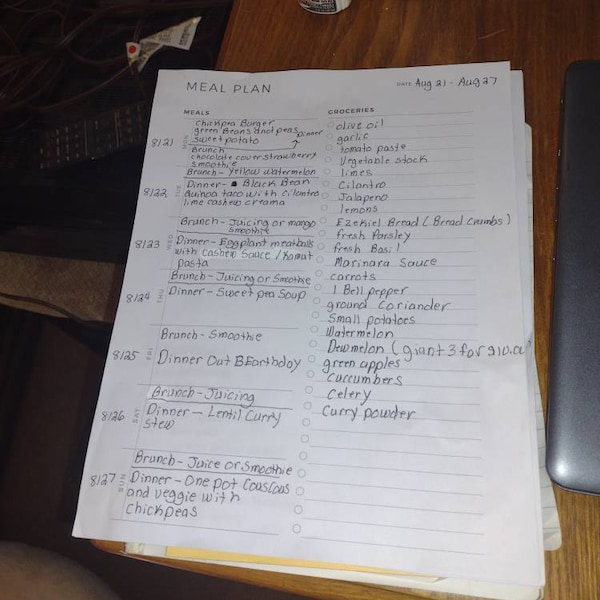 MEAL PLAN
DATE Aug 21 - Aug 27
MEALS
8/21
MON
Chickpea Burger
green Beans and peas Dinner
Sweet potato
Brunch
chocolate cover strawberry
smoothie
8/22
TUE
Brunch - Yellow watermelon
Dinner - Black Bean
Quinoa taco with cilantro
lime cashew creama
8/23
WED
Brunch - Juicing or mango
smoothie
Dinner - Eggplant meatballs
with cashew Sauce / Kamut
pasta
8/24
THU
Brunch - Juicing or Smoothie
Dinner - Sweet pea Soup
8/25
FRI
Brunch - Smoothie
Dinner Out BEarthday
8/26
SAT
Brunch - Juicing
Dinner - Lentil Curry
stew
8/27
SUN
Brunch - Juice or Smoothie
Dinner - One pot CousCous
and veggie with
chickpeas
GROCERIES
olive oil
garlic
tomato paste
Vegetable stock
limes
Cilantro
Jalapeno
lemons
Ezekiel Bread (Bread Crumbs)
fresh Parsley
fresh Basil
Marinara Sauce
carrots
1 Bell pepper
ground Coriander
Small potatoes
Watermelon
Dewmelon (giant 3 for
green apples
Cuccumbers
Celery
Curry powder